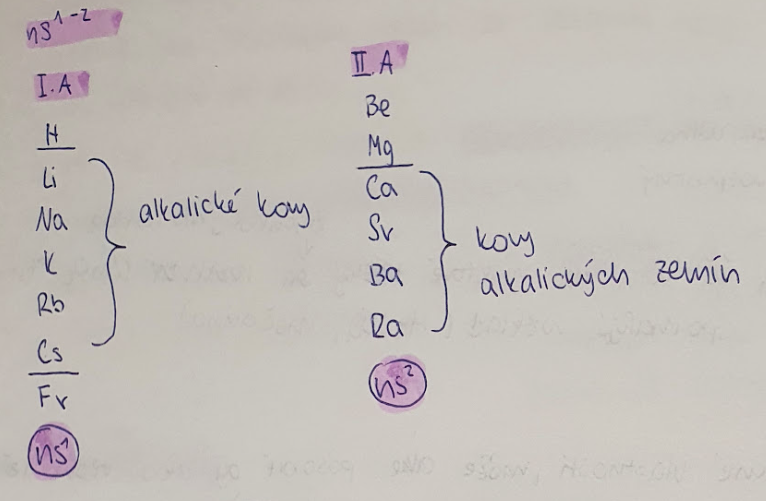 ns¹⁻²
I.A
H
Li
Na
K
Rb
Cs
Fr
ns¹
alkalické kovy
II.A
Be
Mg
Ca
Sr
Ba
Ra
ns²
kovy
alkalických zemín